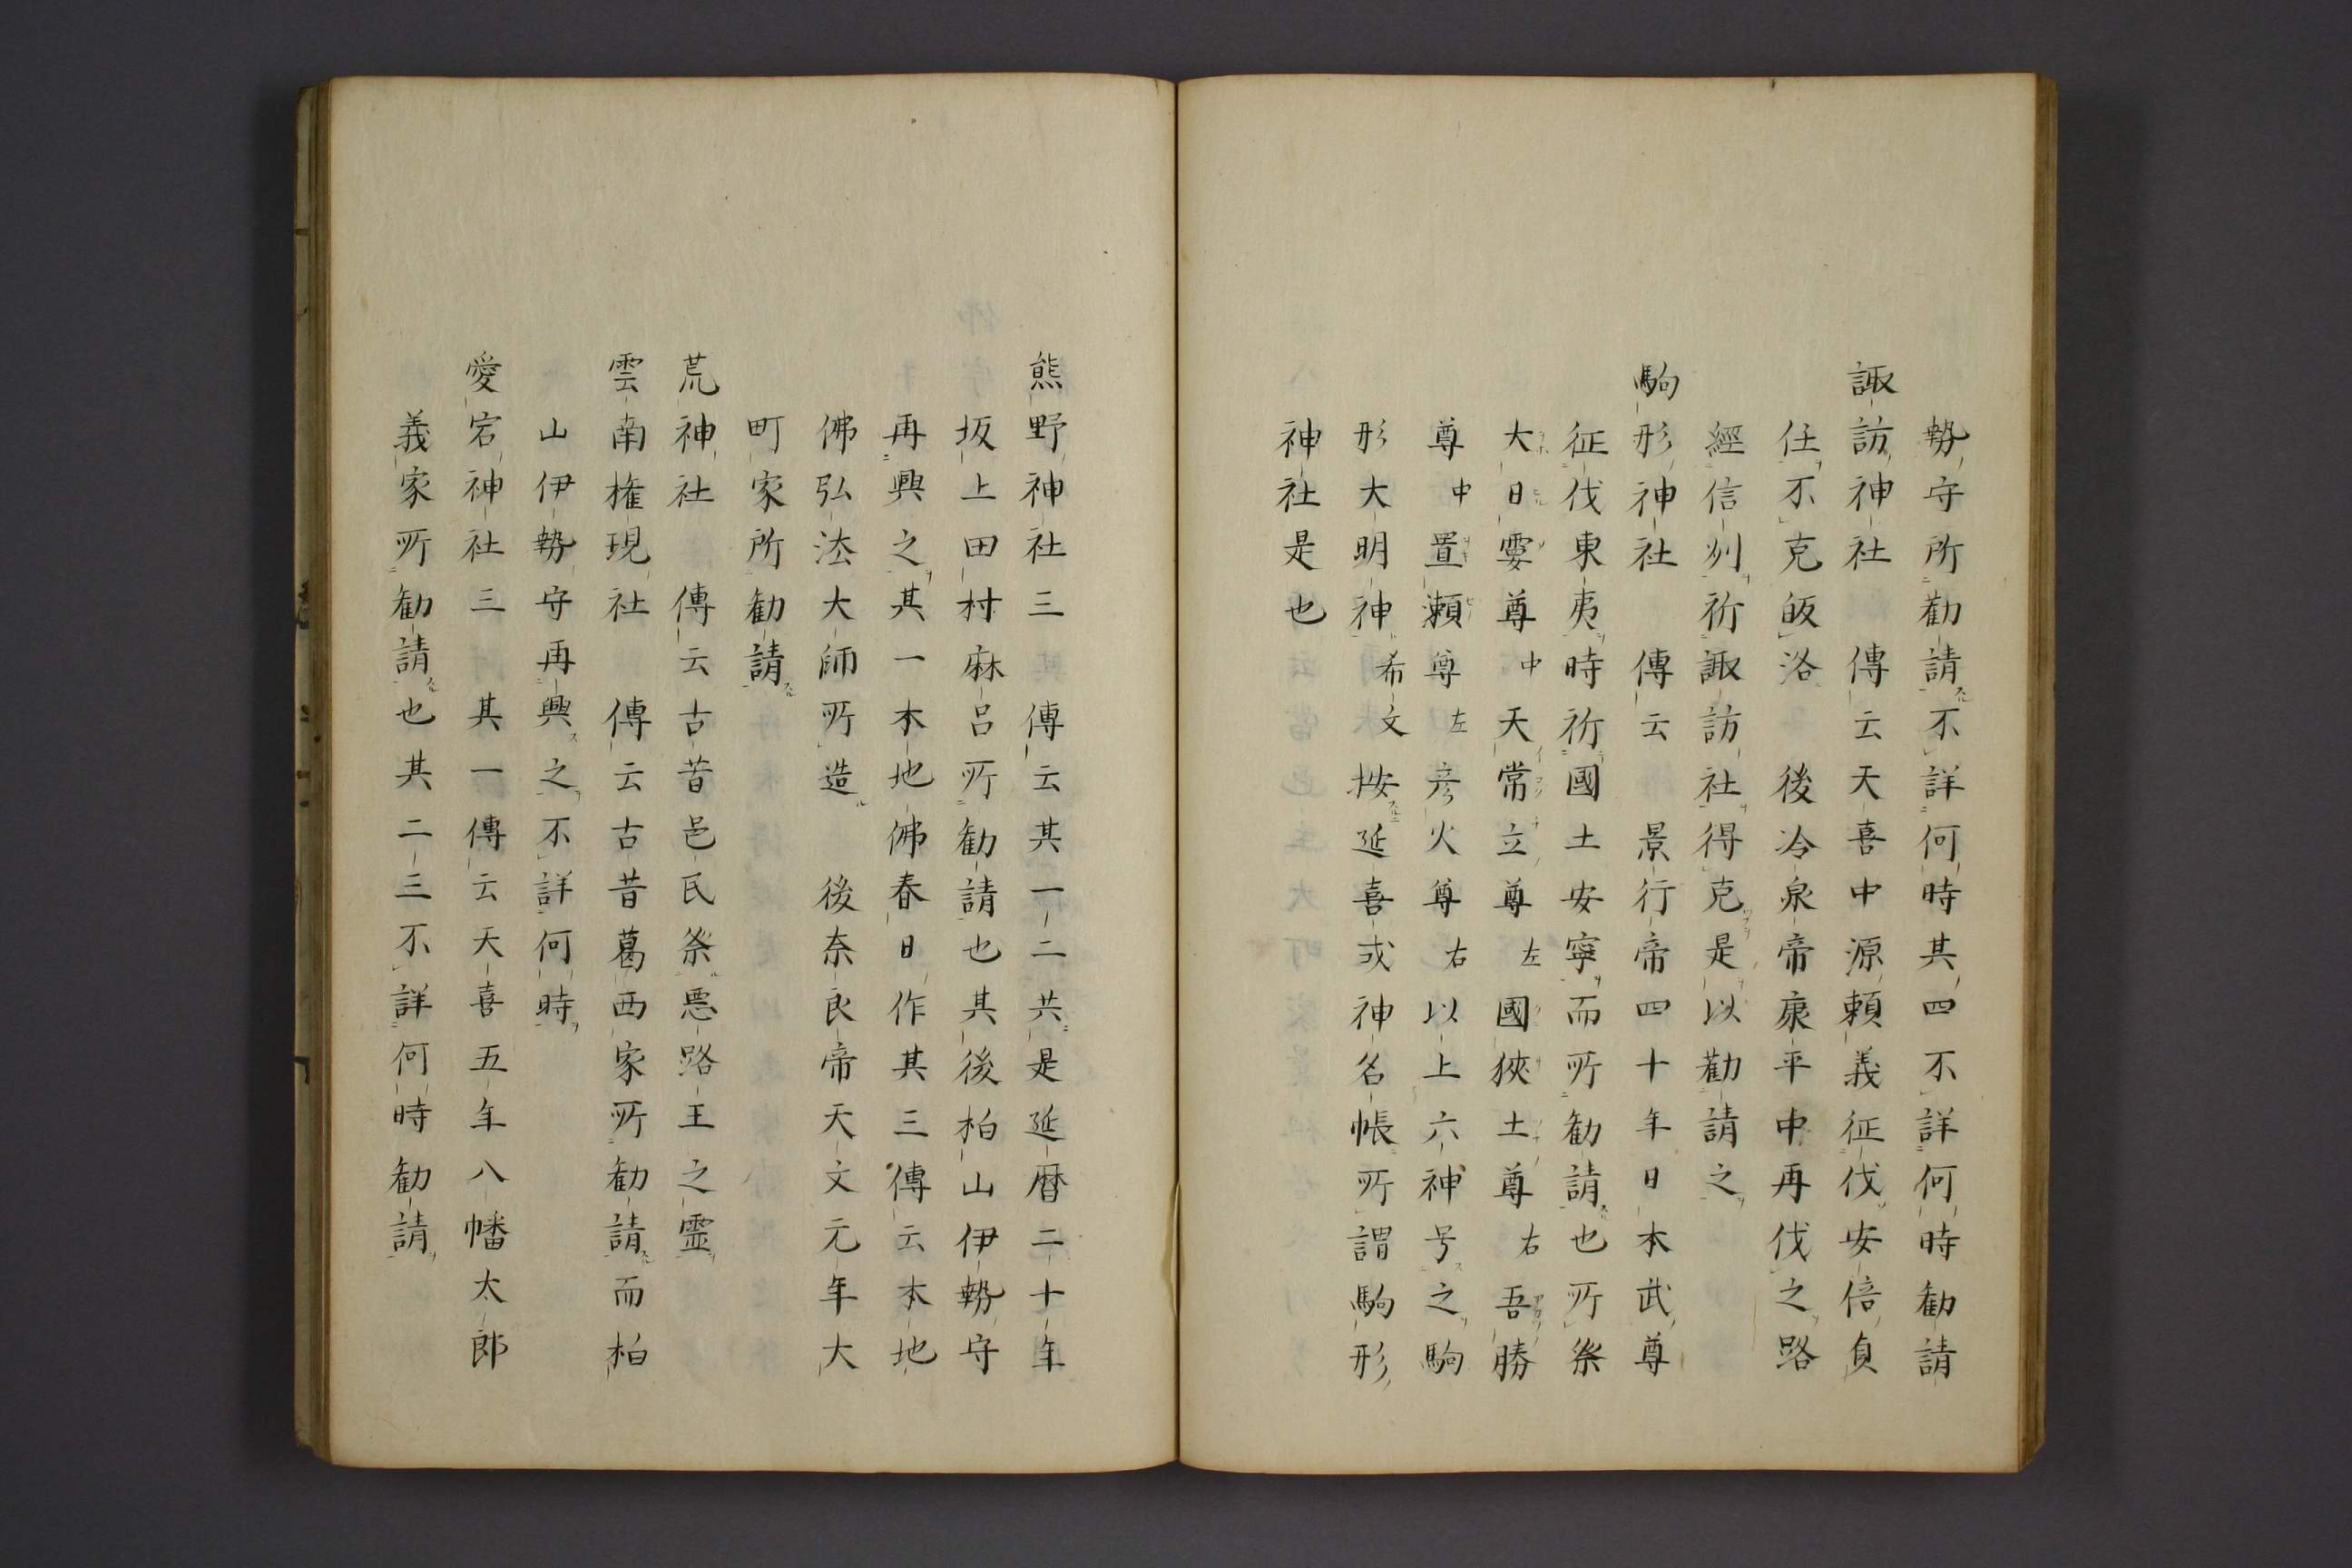 勢守所勧請不詳何時其四不詳何時勧請
諏訪神社　傳云天喜中源頼義征伐安倍貞
任不克皈洛　後冷泉帝康平中再伐之路
經信州祈諏訪社得克是以勧請之
駒形神社　傳云　景行帝四十年日本武尊
征伐東夷時祈國土安寧而所勧請也所祭
大日孁尊中天常立尊左國狹土尊右吾勝
尊中置瀬尊左彦火尊右以上六神号之駒
形大明神希文按延喜或神名帳所謂駒形
神社是也
熊野神社三　傳云其一二共是延暦二十年
坂上田村麻呂所勧請也其後柏山伊勢守
再興之其一本地佛春日作其三傳云本地
佛弘法大師所造　後奈良帝天文元年大
町家所勧請
荒神社　傳云古昔邑民祭悪路王之霊
雲南権現社　傳云古昔葛西家所勧請而柏
山伊勢守再興之不詳何時
愛宕神社三　其一傳云天喜五年八幡太郎
義家所勧請也其二三不詳何時勧請